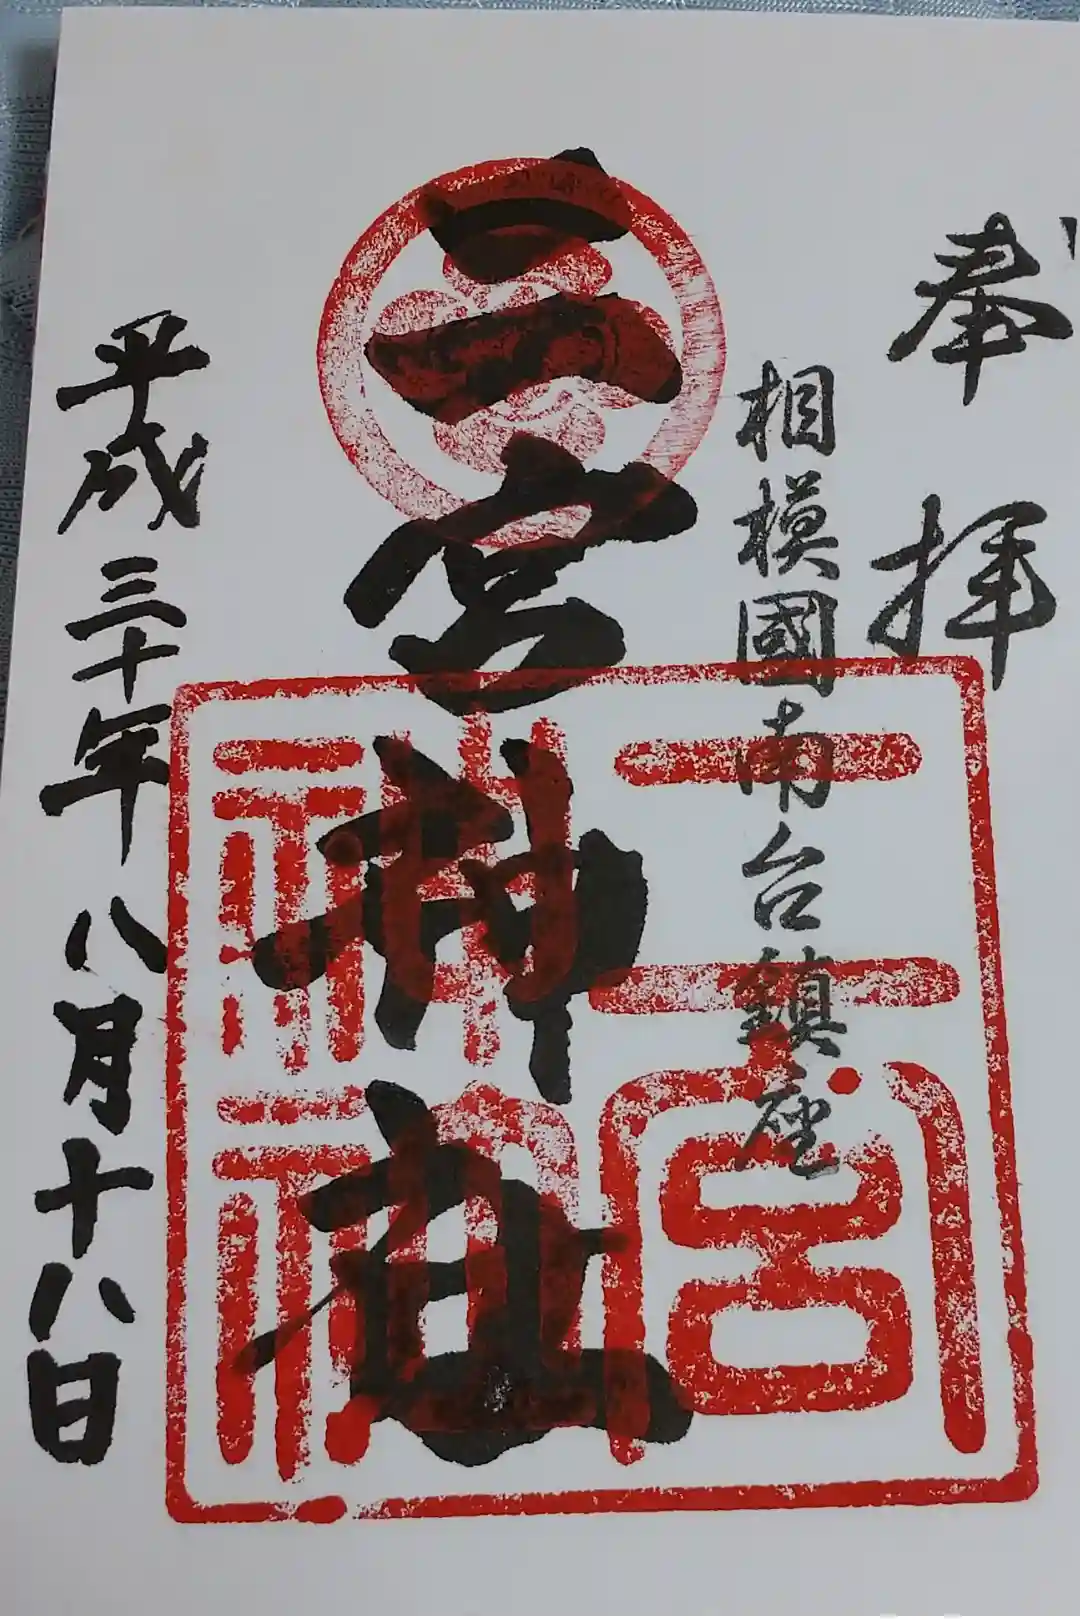 奉拝
相模國南台鎮座
二宮神社
二宮
神社
平成三十年八月十八日